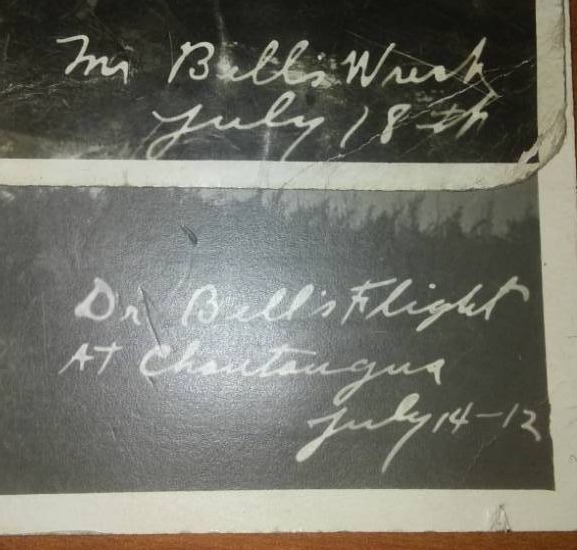 Mr Bell's Wreck
July 18th
Dr Bell's Flight
At Chautauqua
July 14-12